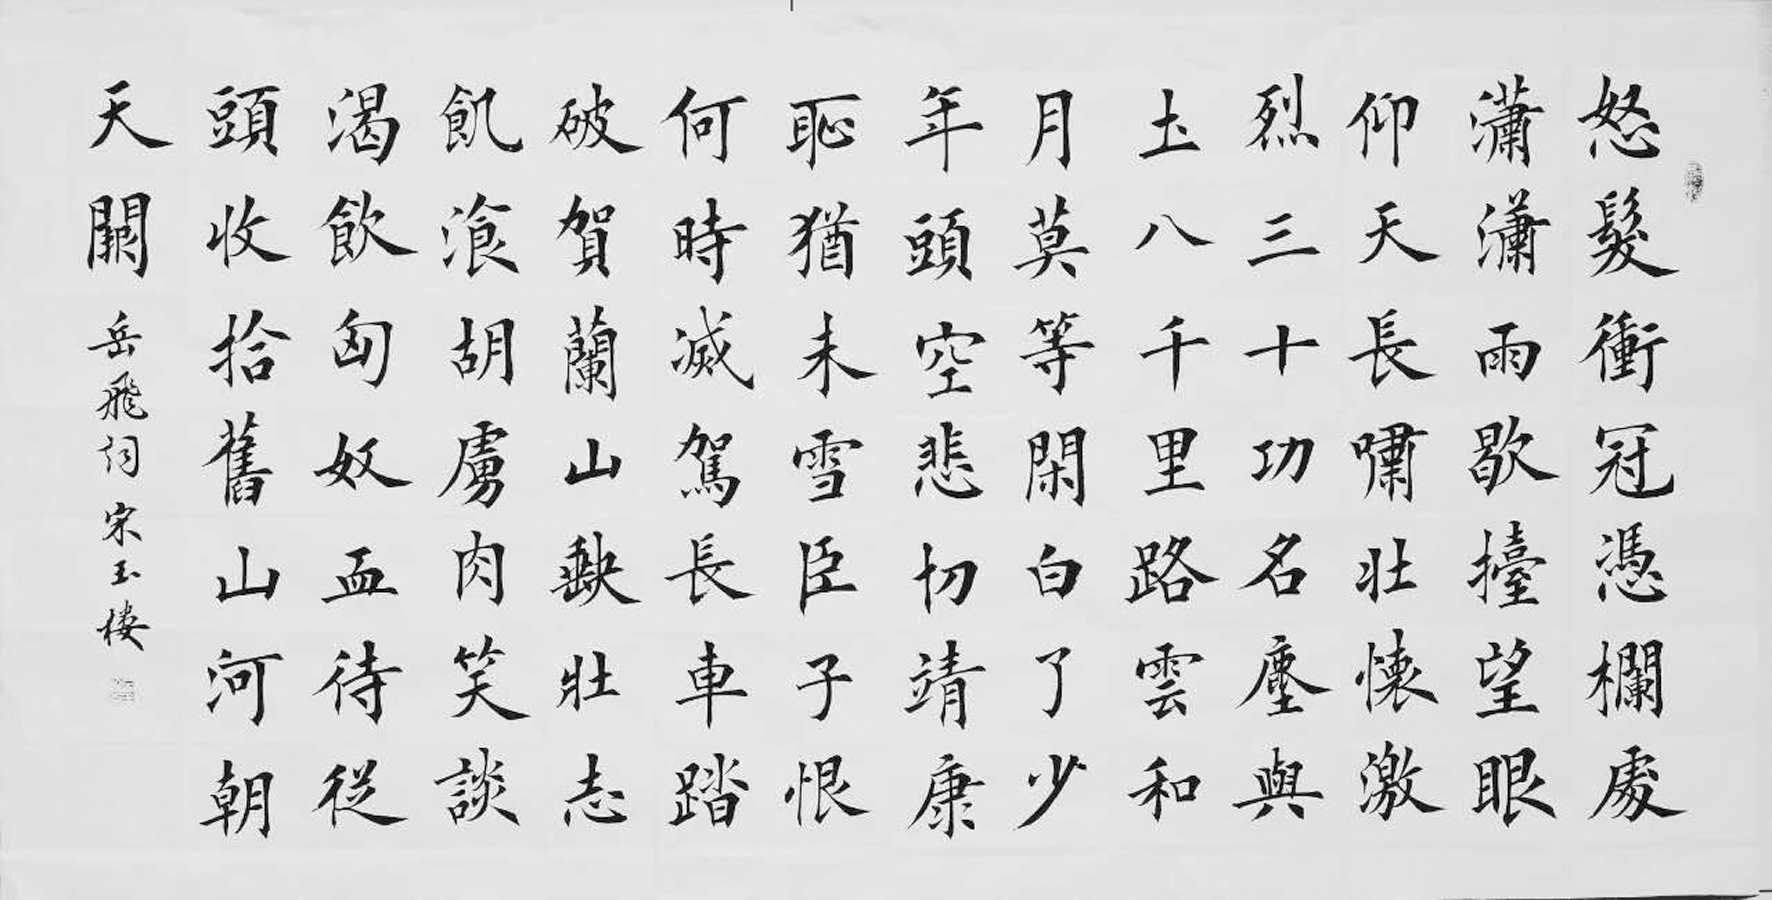 怒髮衝冠憑欄處
瀟瀟雨歇擡望眼
仰天長嘯壯懷激
烈三十功名塵與
土八千里路雲和
月莫等閑白了少
年頭空悲切靖康
恥猶未雪臣子恨
何時滅駕長車踏
破賀蘭山缺壯志
飢飡胡虜肉笑談
渴飲匈奴血待從
頭收拾舊山河朝
天闕
岳飛詞宋玉樓